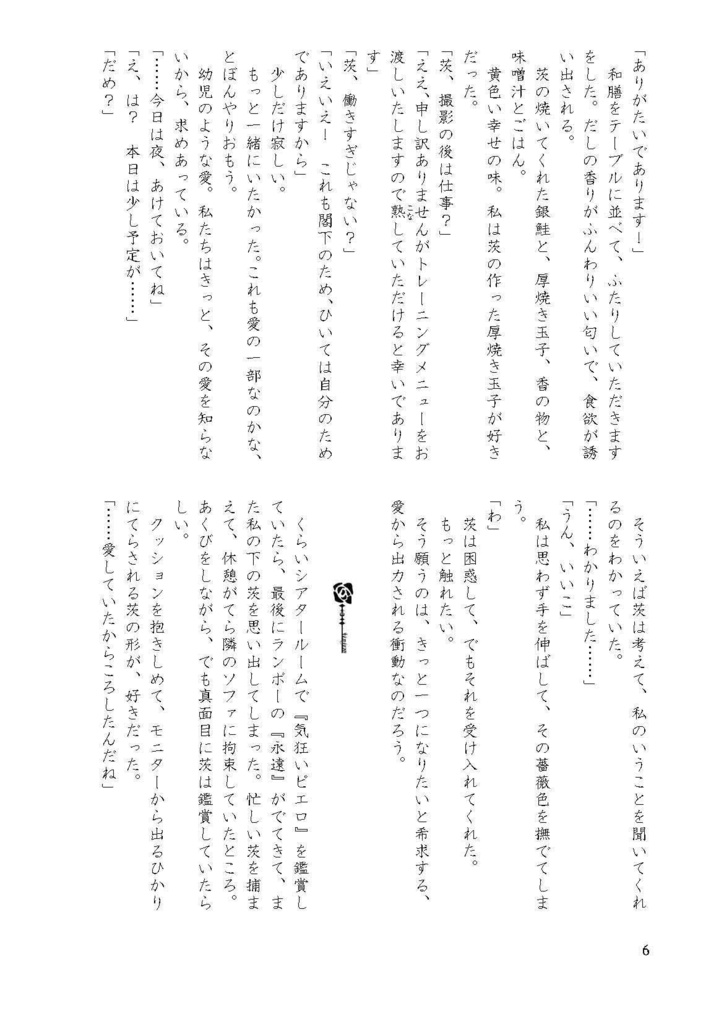 「ありがたいであります！」
　和膳をテーブルに並べて、ふたりしていただきます
をした。だしの香りがふんわりいい匂いで、食欲が誘
い出される。
　茨の焼いてくれた銀鮭と、厚焼き玉子、香の物と、
味噌汁とごはん。
　黄色い幸せの味。私は茨の作った厚焼き玉子が好き
だった。
「茨、撮影の後は仕事？」
「ええ、申し訳ありませんがトレーニングメニューをお
渡しいたしますので熟こなしていただけると幸いでありま
す」
「茨、働きすぎじゃない？」
「いえいえ！　これも閣下のため、ひいては自分のため
でありますから」
　少しだけ寂しい。
　もっと一緒にいたかった。これも愛の一部なのかな、
とぼんやりおもう。
　幼児のような愛。私たちはきっと、その愛を知らな
いから、求めあっている。
「……今日は夜、あけておいてね」
「え、は？　本日は少し予定が……」
「だめ？」
　そういえば茨は考えて、私のいうことを聞いてくれ
るのをわかっていた。
「……わかりました……」
「うん、いいこ」
　私は思わず手を伸ばして、その薔薇色を撫でてしま
う。
「わ」
　茨は困惑して、でもそれを受け入れてくれた。
　もっと触れたい。
　そう願うのは、きっと一つになりたいと希求する、
愛から出力される衝動なのだろう。
　くらいシアタールームで『気狂いピエロ』を鑑賞し
ていたら、最後にランボーの『永遠』がでてきて、ま
た私の下の茨を思い出してしまった。忙しい茨を捕ま
えて、休憩がてら隣のソファに拘束していたところ。
あくびをしながら、でも真面目に茨は鑑賞していたら
しい。
　クッションを抱きしめて、モニターから出るひかり
にてらされる茨の形が、好きだった。
「……愛していたからころしたんだね」
6